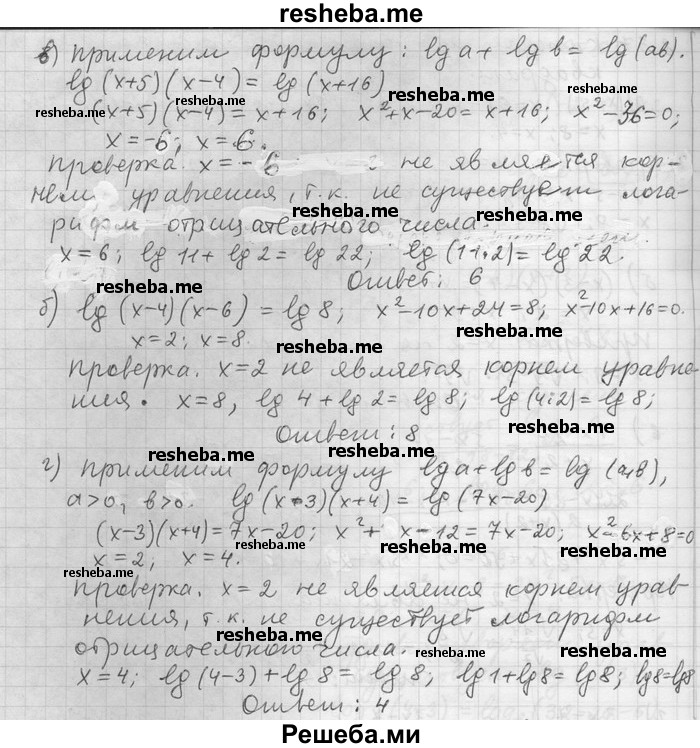 resheba.me
в) Применим формулу: lg a + lg b = lg (ab).
lg (x+5)(x-4) = lg (x+16) resheba.me
resheba.me (x+5)(x-4) = x+16; x²+x-20 = x+16; x²-36=0;
x=-6; x=6. resheba.me
Проверка. x=-6 не является кор-
нем уравнения, т.к. не существует лога-
рифм отрицательного числа. resheba.me
x=6; lg 11 + lg 2 = lg 22; lg (11·2) = lg 22.
resheba.me Ответ: 6 resheba.me
б) lg (x-4)(x-6) = lg 8; x²-10x+24=8; x²-10x+16=0.
x=2; x=8. resheba.me resheba.me
Проверка. x=2 не является корнем уравне-
ния. x=8, lg 4 + lg 2 = lg 8; lg (4·2) = lg 8;
resheba.me Ответ: 8 resheba.me
г) Применим формулу lg a + lg b = lg (a,b),
a>0, b>0. lg (x-3)(x+4) = lg (7x-20)
(x-3)(x+4) = 7x-20; x²+x-12 = 7x-20; x²-6x+8=0
x=2; x=4. resheba.me resheba.me
resheba.me
Проверка. x=2 не является корнем урав-
нения, т.к. не существует логарифм
отрицательного числа. resheba.me resheba.me
x=4; lg (4-3) + lg 8 = lg 8; lg 1 + lg 8 = lg 8; lg 8 = lg 8
resheba.me Ответ: 4 resheba.me
Решеба.ми